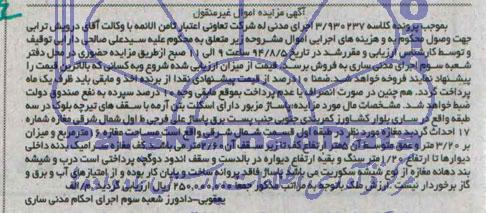 آگهی مزایده اموال غیرمنقول
بموجب پرونده کلاسه ۳/۹۳۰۲۳۷ اجرای مدنی له شرکت تعاونی اعتبار ثامن الائمه با وکالت آقای درویش ترابی
جهت وصول محکوم به و هزینه های اجرایی اموال مشروحه زیر متعلق به محکوم علیه سیدعلی صالحی در توقیف
و توسط کارشناس ارزیابی و مقرر شد در تاریخ ۹۴/۸/۵ ساعت ۹ الی از طریق مزایده حضوری در محل دفتر
شعبه سوم اجرای مدنی ساری به فروش برسد. قیمت از میزان ارزیابی شده شروع و به کسانی که بالاترین قیمت را
پیشنهاد نمایند فروخته خواهد شد. ضمنا ۱۰ درصد از قیمت پیشنهادی نقدا از برنده اخذ و مابقی باید ظرف یک ماه
پرداخت گردد. هم چنین در صورت انصراف یا عدم پرداخت بموقع مابقی وجه ۱۰ درصد سپرده به نفع صندوق دولت
ضبط خواهد شد. مشخصات مال مورد مزایده: پاساژ مزبور دارای اسکلت بتن آرمه با سقف های تیرچه بلوک در سه
طبقه واقع در ساری بلوار کشاورز کمربندی جنوبی جنب پست برق پاساژ علی فرجی ضلع شمال شرقی مغازه شماره
۱۷ احداث گردید مغازه مورد نظر در طبقه اول قسمت شمال شرقی واقع است مساحت مغازه ۱۶ مترمربع و میزان
بر ۳/۲۰ متر و عمق متوسط آن ۵ متر ارتفاع کف تا زیر سقف آن ۲/۶۰ متر می باشد کف مغازه سرامیک بدنه داخلی
دیوارها تا ارتفاع سنگ و بقیه ارتفاع دیواره در بالدست و سقف اندود دوگچه پرداختی است درب و شیشه
بند دهانه مغازه از نوع شیشه سکوریت می باشد پاساژ فاقد پروانه ساخت و پایان کار بوده و از امتیازهای آب و برق و
گاز برخوردار نیست. ارزش ملک باتوجه به مراتب مذکور جمعا ریال ارزیابی گردید. م/الف
یعقوبی-دادورز شعبه سوم اجرای احکام مدنی ساری